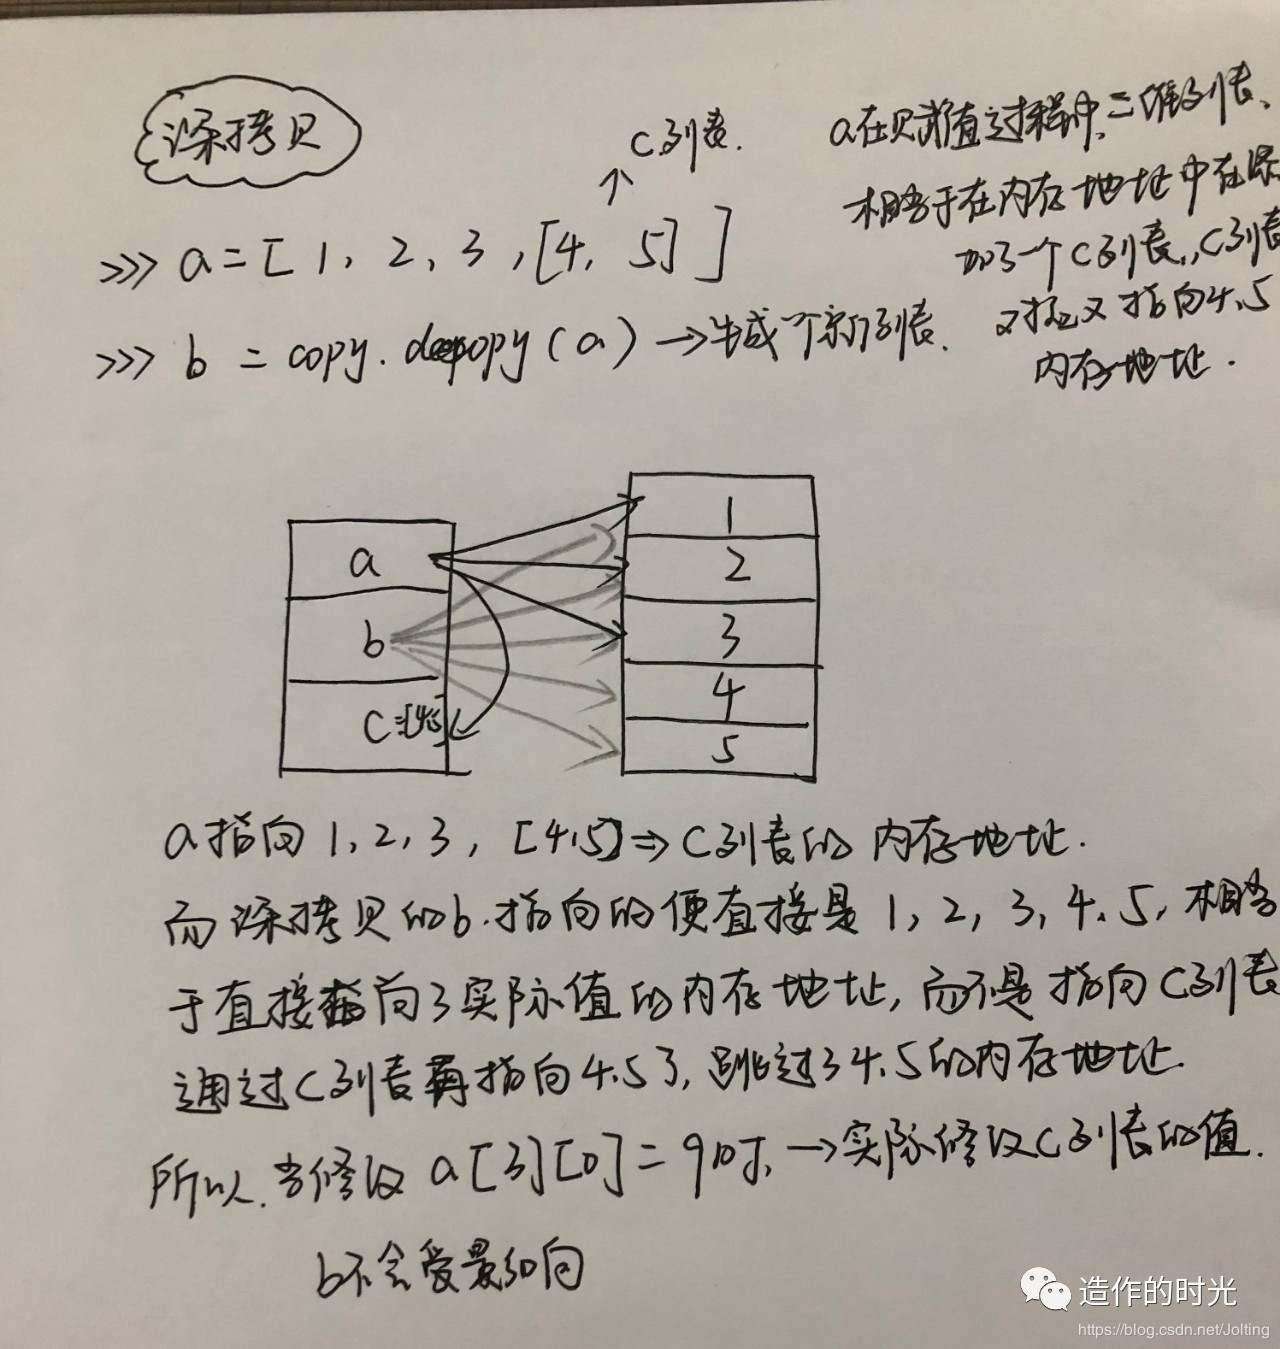 深拷贝
C列表.
>>> a=[1, 2, 3, [4, 5]]
>>> b = copy.deepcopy(a) →生成一个新列表.
a在赋值过程中,二维列表、
相当于在内存地址中在添
加了一个C列表,,C列表
又指向4.5
内存地址.
a
b
C=[4,5]
1
2
3
4
5
a指向1,2,3,[4,5]⇒C列表的内存地址.
而深拷贝的b.指向的便直接是1,2,3,4,5,相当
于直接指向了实际值的内存地址,而不是指向C列表
通过C列表再指向4.5了,跳过了4.5的内存地址.
所以.当修改a[3][0]=9时,→实际修改C列表的值.
b不会受影响
造作的时光
https://blog.csdn.net/Jolting